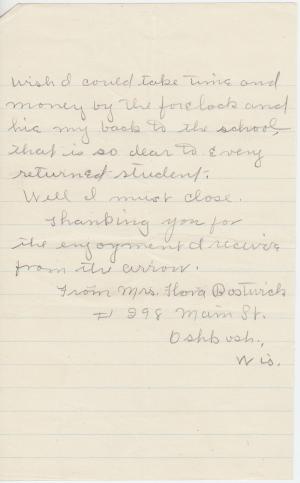 wish I could take time and
money by the forelock and
hie my back to the school,
that is so dear to every
returned student.
Will I must close.
Thanking you for
the enjoyment I receive
from the arrow.
From Mrs. Flora Bostwick
# 298 Main St.
Oshkosh.,
Wis.